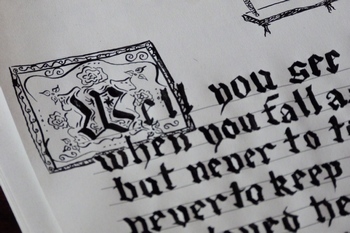 Well you see
when you fall a
but never to t
never to keep